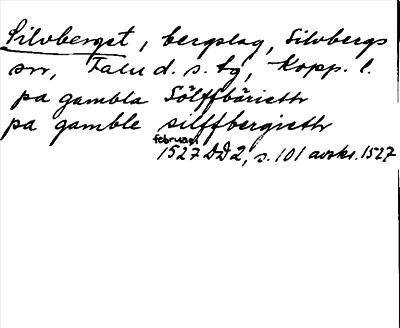 Silvberget, bergslag, Silvbergs
sn, Falu d. s. tg, Kopp. l.
pa gambla Sölffbärieth
pa gamble silffbergieth
februari
1527 DD2, s. 101 avskr. 1527